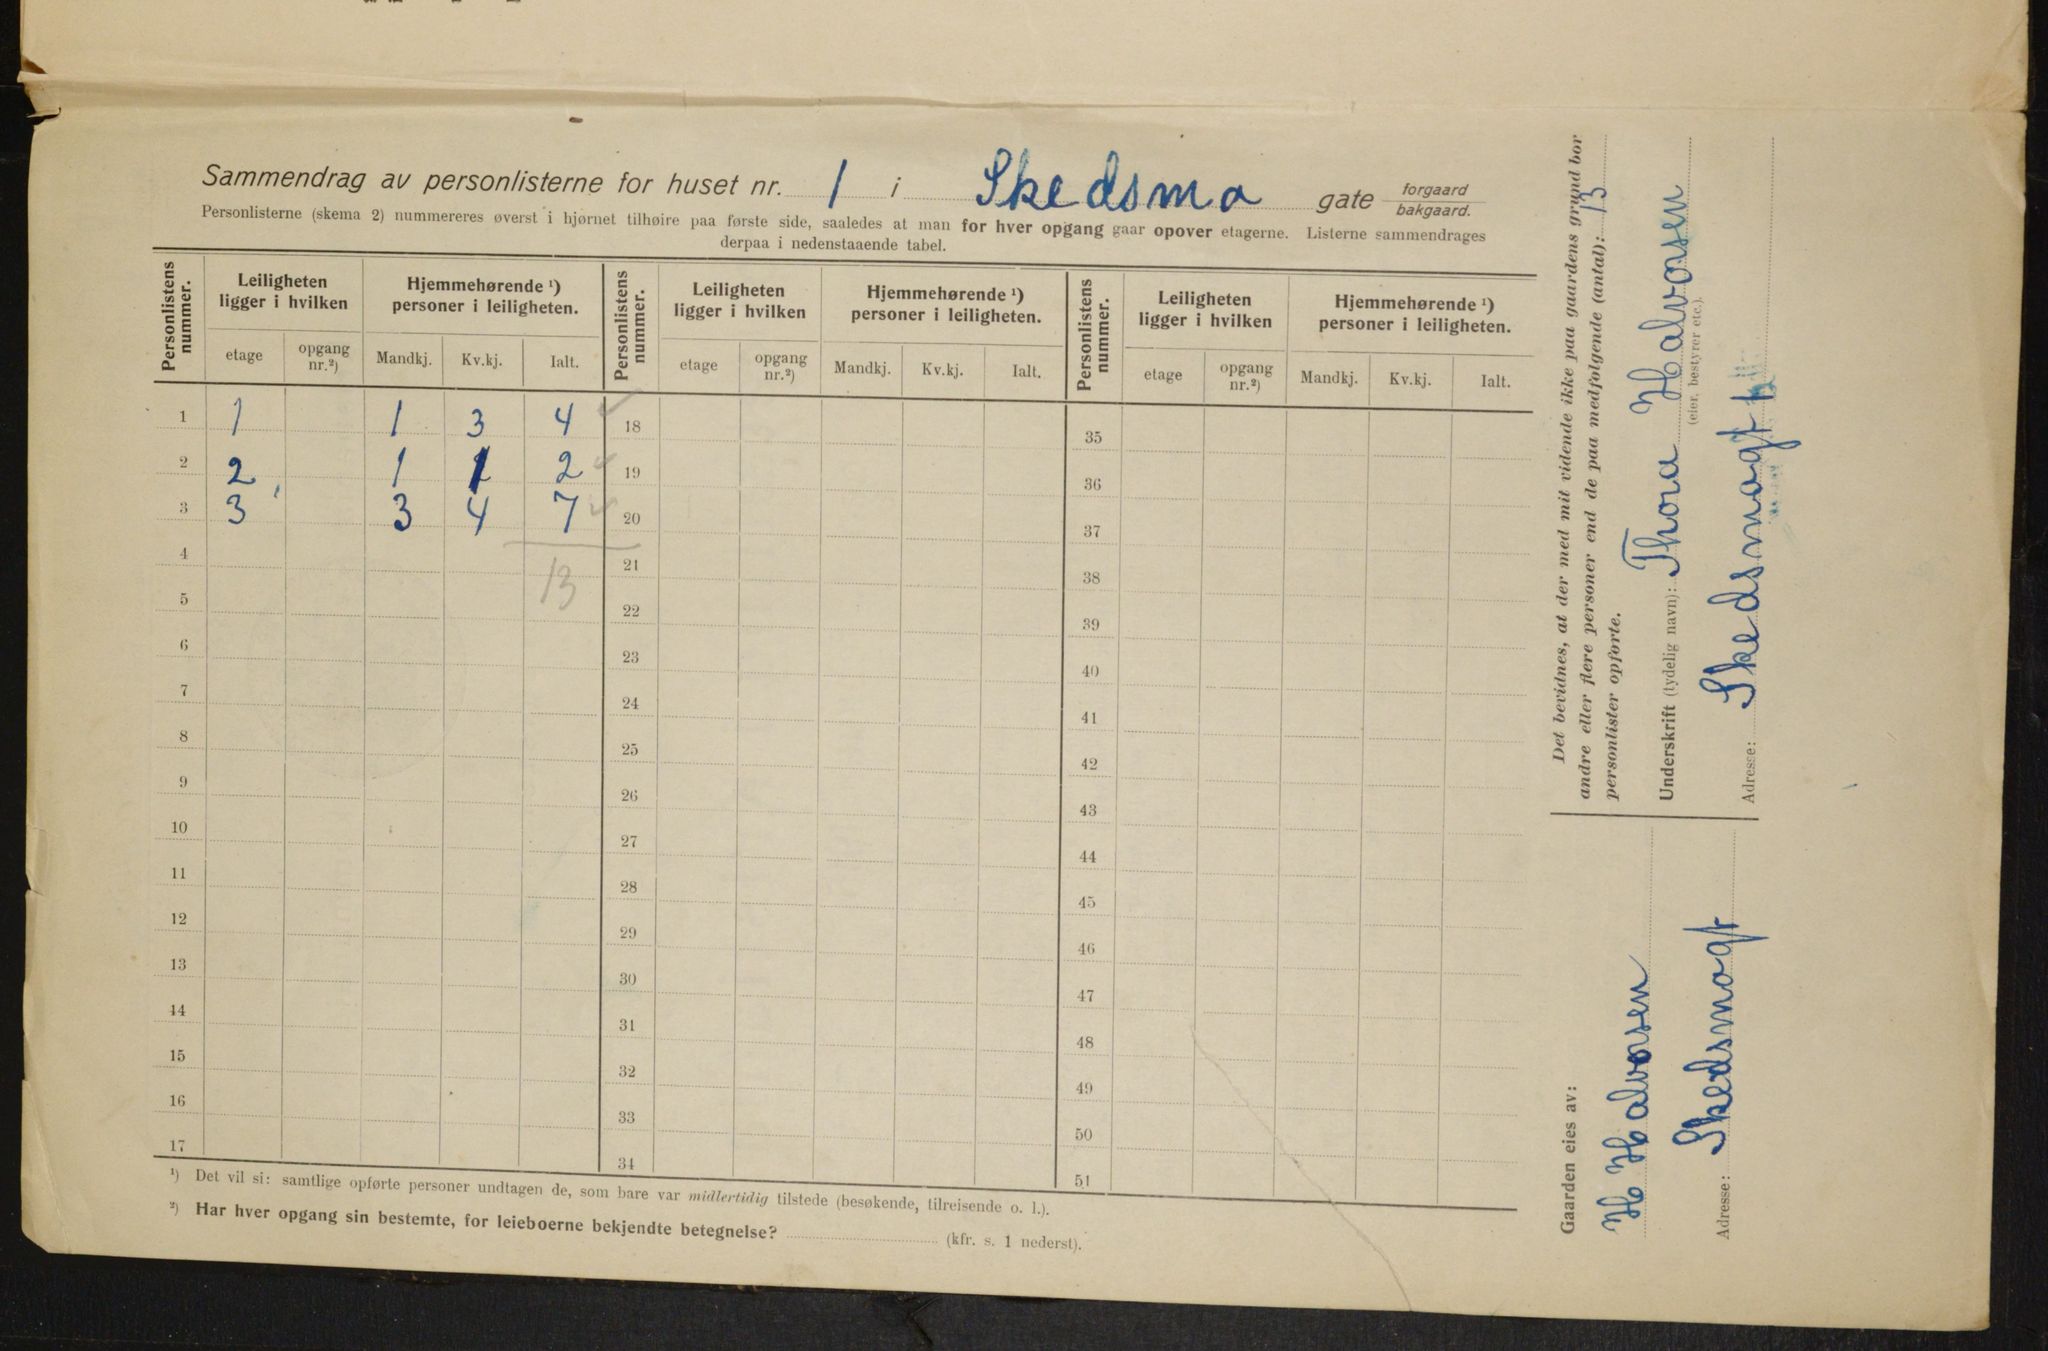 Sammendrag av personlisterne for huset nr. 1 i Skedsmo gate forgaard bakgaard.
Personlisterne (skema 2) nummereres øverst i hjørnet tilhøire paa første side, saaledes at man for hver opgang gaar opover etagerne. Listerne sammendrages
derpaa i nedenstaaende tabel.
Personlistens nummer. Leiligheten ligger i hvilken Hjemmehørende ¹) personer i leiligheten. Personlistens nummer. Leiligheten ligger i hvilken Hjemmehørende ¹) personer i leiligheten. Personlistens nummer. Leiligheten ligger i hvilken Hjemmehørende ¹) personer i leiligheten.
etage opgang nr.²) Mandkj. Kv.kj. Ialt. etage opgang nr.²) Mandkj. Kv.kj. Ialt. etage opgang nr.²) Mandkj. Kv.kj. Ialt.
1 1 1 3 4 18 35
2 2 1 1 2 19 36
3 3 3 4 7 20 37
4 13 21 38
5 22 39
6 23 40
7 24 41
8 25 42
9 26 43
10 27 44
11 28 45
12 29 46
13 30 47
14 31 48
15 32 49
16 33 50
17 34 51
¹) Det vil si: samtlige opførte personer undtagen de, som bare var midlertidig tilstede (besøkende, tilreisende o. l.).
²) Har hver opgang sin bestemte, for leieboerne bekjendte betegnelse? (kfr. s. 1 nederst).
Det bevidnes, at der med mit vidende ikke paa gaardens grund bor
andre eller flere personer end de paa medfølgende (antal): 13
personlister opførte.
Underskrift (tydelig navn): Thora Halvorsen
(eier, bestyrer etc.).
Adresse: Skedsmogt
Gaarden eies av:
H Halvorsen
Adresse: Skedsmogt